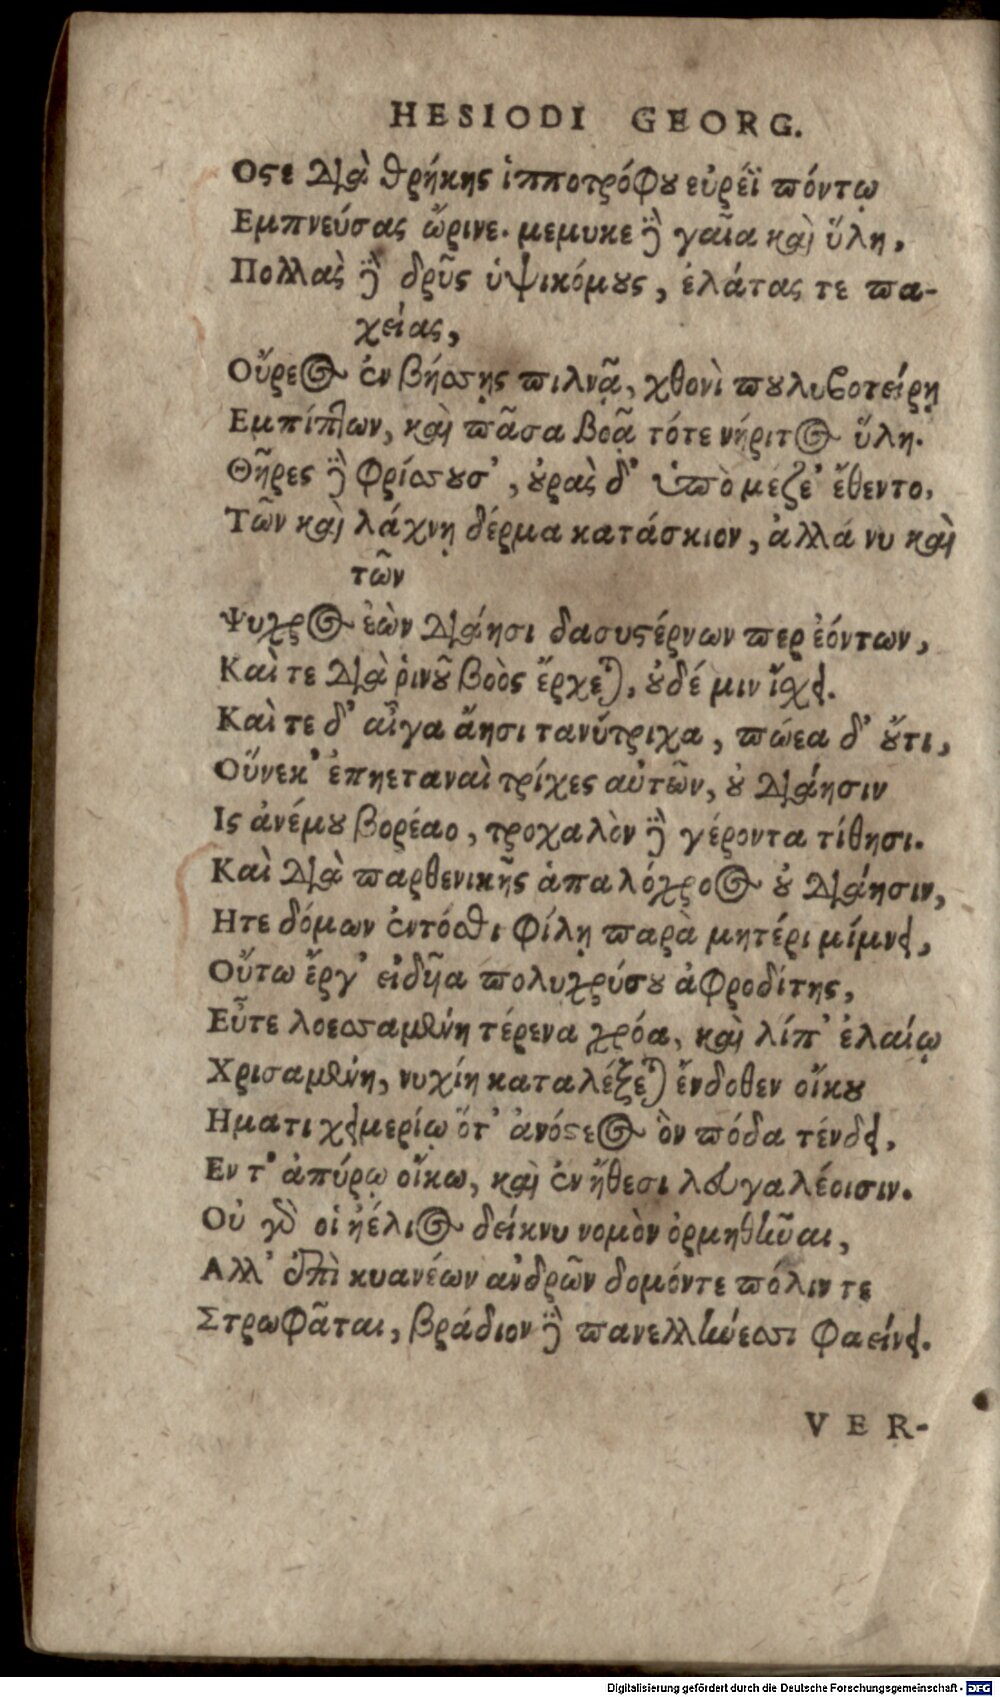 HESIODI GEORG.
Οςε διὰ θρήκης ἱπποτρόφου εὐρέϊ πόντῳ
Εμπνεύσας ὤρινε. μεμυκε δὲ γαῖα καὶ ὕλη,
Πολλὰς δὲ δρῦς ὑψικόμους, ἐλάτας τε πα-
χείας,
Οὔρεος ἐν βήσσῃς πιλνᾷ, χθονὶ πουλυβοτείρῃ
Εμπίπτων, καὶ πᾶσα βοᾷ τότε νήριτος ὕλη.
Θῆρες δὲ φρίσσουσ᾽, οὐρὰς δ᾽ ὑπὸ μέζε᾽ ἔθεντο,
Τῶν καὶ λάχνῃ δέρμα κατάσκιον, ἀλλά νυ καὶ
τῶν
Ψυχρὸς ἐὼν διάησι δασυςέρνων περ ἐόντων,
Καί τε διὰ ῥινοῦ βοὸς ἔρχεται, οὐδέ μιν ἴσχει.
Καί τε δ᾽ αἶγα ἄησι τανύτριχα, πώεα δ᾽ οὔτι,
Οὕνεκ᾽ ἐπηεταναὶ τρίχες αὐτῶν, οὐ διάησιν
Ις ἀνέμου βορέαο, τροχαλὸν δὲ γέροντα τίθησι.
Καὶ διὰ παρθενικῆς ἁπαλόχροος οὐ διάησιν,
Ητε δόμων ἐντόσθι φίλῃ παρὰ μητέρι μίμνει,
Οὔτω ἔργ᾽ εἰδυῖα πολυχρύσου ἀφροδίτης,
Εὖτε λοεσσαμένη τέρενα χρόα, καὶ λίπ᾽ ἐλαίῳ
Χρισαμένη, νυχίη καταλέξεται ἔνδοθεν οἴκου
Ηματι χειμερίῳ ὅτ᾽ ἀνόςεος ὃν πόδα τένδει,
Εν τ᾽ ἀπύρῳ οἴκω, καὶ ἐν ἤθεσι λευγαλέοισιν.
Οὐ γὰρ οἱ ἠέλιος δείκνυ νομὸν ὁρμηθῆναι,
Αλλ᾽ ἐπὶ κυανέων ἀνδρῶν δομόντε πόλιν τε
Στρωφᾶται, βράδιον δὲ πανελλήνεσσι φαείνει.
VER-
Digitalisierung gefördert durch die Deutsche Forschungsgemeinschaft - DFG